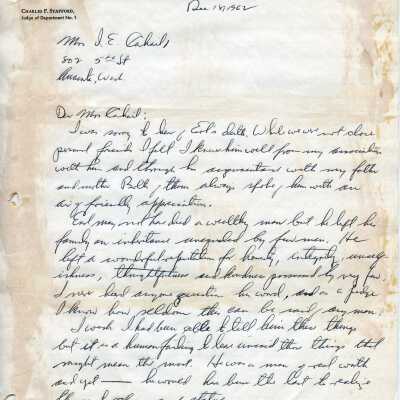 CHARLES F. STAFFORD,
Judge of Department No. 1
Dec 14, 1962
Mrs I. E. Cahail
802 5th St
Anacortes, Wash
Dear Mrs Cahail:
I was sorry to hear of Earl's death. While we were not close
personal friends I felt I knew him well from my association
with him and through his acquaintance with my father
and mother. Both of them always spoke of him with an
air of friendly appreciation.
Earl may not have died a wealthy man but he left his
family an inheritance unequaled by few men. He
left a wonderful reputation for honesty, integrity, unself-
ishness, thoughtfulness and kindness possessed by very few.
I never heard anyone question his word, and as a judge
I know how seldom this can be said of any man.
I wish I had been able to tell him these things
but it is a human failing to leave unsaid the things that
might mean the most. He was a man of real worth
and yet — he would have been the last to realize